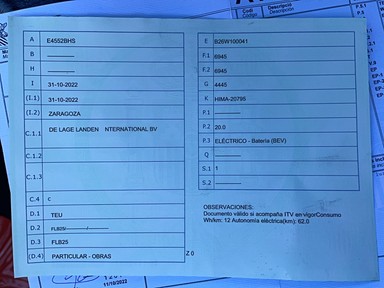 Código
Descripción
Descripción
A E4552BHS
B
H
I 31-10-2022
(I.1) 31-10-2022
(I.2) ZARAGOZA
C.1.1 DE LAGE LANDEN INTERNATIONAL BV
C.1.2
C.1.3
C.4 c
D.1 TEU
D.2 FLB25/ /
D.3 FLB25
(D.4) PARTICULAR - OBRAS
E B26W100041
F.1 6945
F.2 6945
G 4445
K HIMA-20795
P.1
P.2 20.0
P.3 ELÉCTRICO - Batería (BEV)
Q
S.1 1
S.2
OBSERVACIONES:
Documento válido si acompaña ITV en vigorConsumo
Wh/km: 12 Autonomía eléctrica(km): 62.0
Z 0
11/10/2022